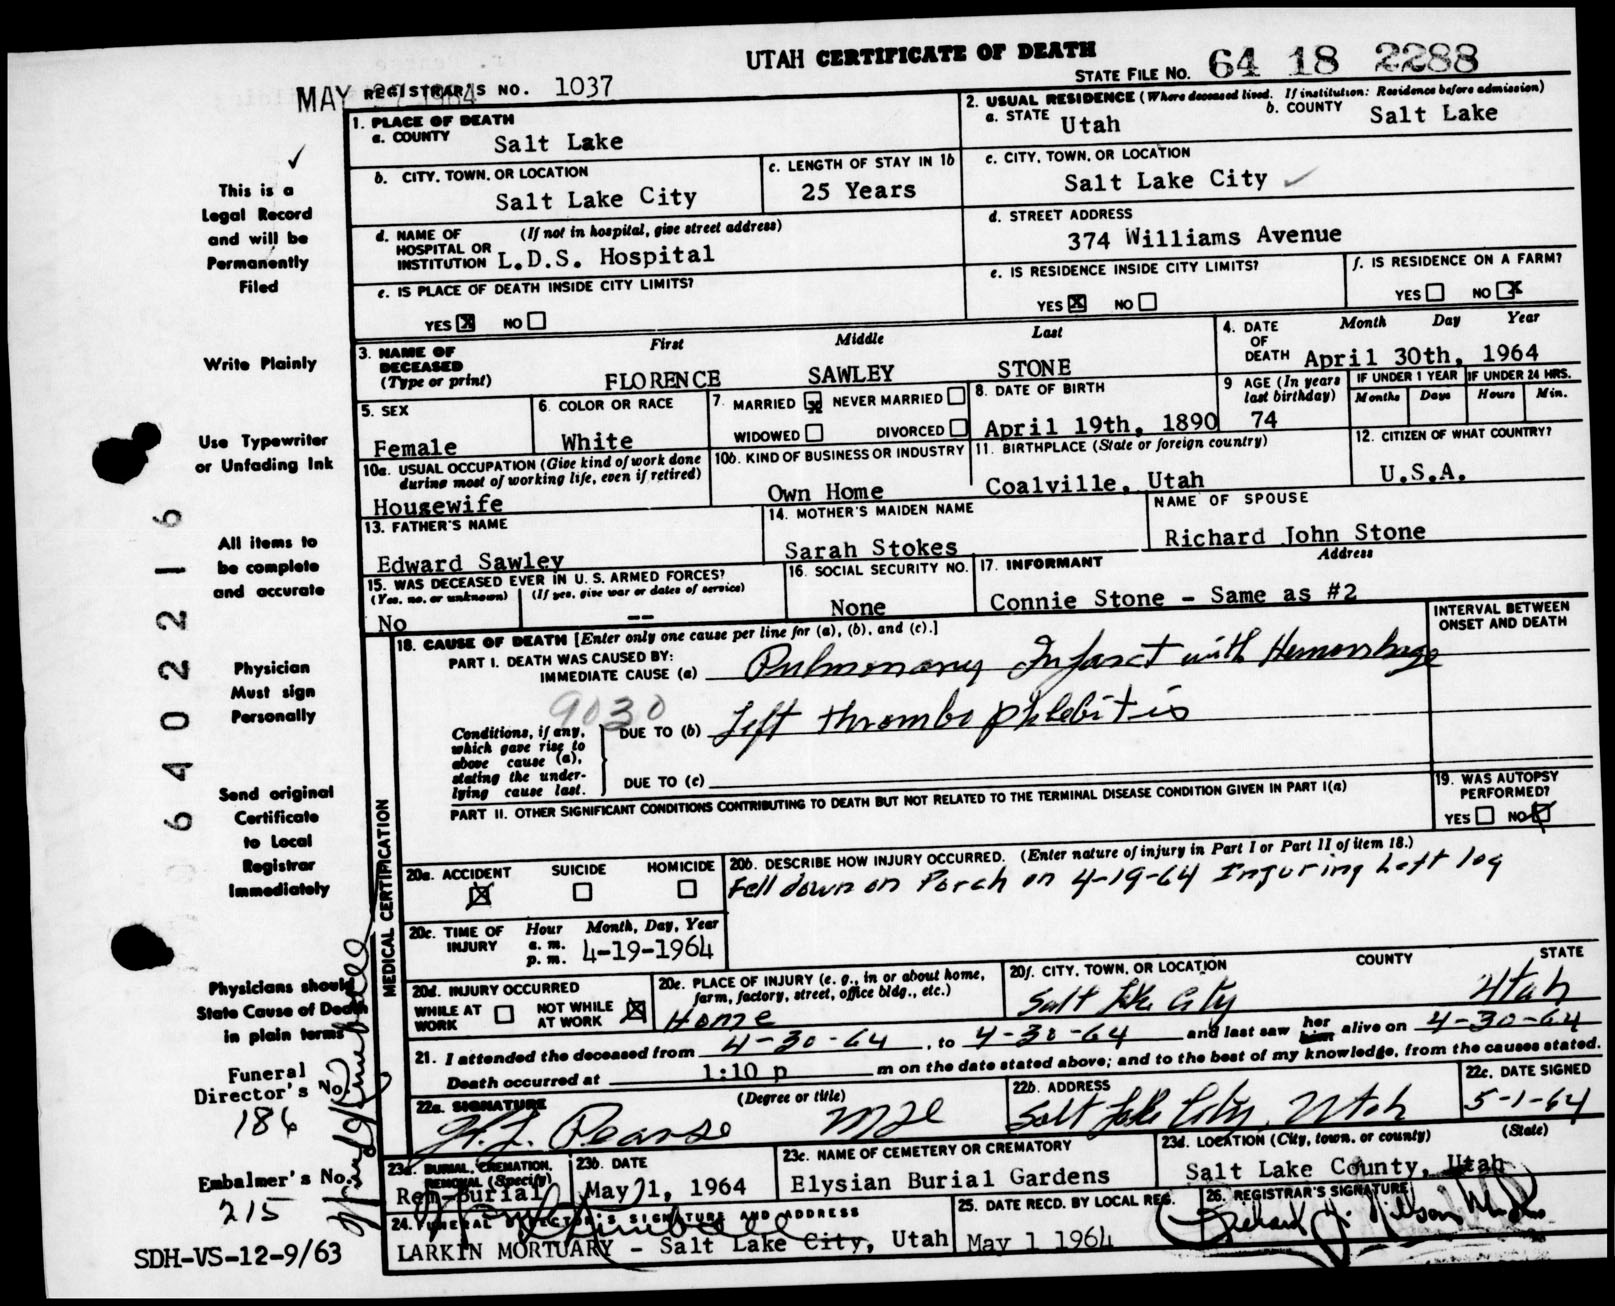 UTAH CERTIFICATE OF DEATH
STATE FILE NO. 64 18 2288
MAY 1964 REGISTRAR'S NO. 1037
1. PLACE OF DEATH
a. COUNTY Salt Lake
b. CITY, TOWN, OR LOCATION
Salt Lake City
c. LENGTH OF STAY IN 1b
25 Years
d. NAME OF HOSPITAL OR INSTITUTION (If not in hospital, give street address)
L.D.S. Hospital
e. IS PLACE OF DEATH INSIDE CITY LIMITS?
YES X NO
2. USUAL RESIDENCE (Where deceased lived. If institution: Residence before admission)
a. STATE Utah
b. COUNTY Salt Lake
c. CITY, TOWN, OR LOCATION
Salt Lake City
d. STREET ADDRESS
374 Williams Avenue
e. IS RESIDENCE INSIDE CITY LIMITS?
YES X NO
f. IS RESIDENCE ON A FARM?
YES NO X
3. NAME OF DECEASED (Type or print)
First Middle Last
FLORENCE SAWLEY STONE
4. DATE OF DEATH Month Day Year
April 30th, 1964
5. SEX
Female
6. COLOR OR RACE
White
7. MARRIED X NEVER MARRIED
WIDOWED DIVORCED
8. DATE OF BIRTH
April 19th, 1890
9 AGE (In years last birthday)
74
IF UNDER 1 YEAR IF UNDER 24 HRS.
Months Days Hours Min.
10a. USUAL OCCUPATION (Give kind of work done during most of working life, even if retired)
Housewife
10b. KIND OF BUSINESS OR INDUSTRY
Own Home
11. BIRTHPLACE (State or foreign country)
Coalville, Utah
12. CITIZEN OF WHAT COUNTRY?
U.S.A.
13. FATHER'S NAME
Edward Sawley
14. MOTHER'S MAIDEN NAME
Sarah Stokes
NAME OF SPOUSE
Richard John Stone
15. WAS DECEASED EVER IN U. S. ARMED FORCES?
(Yes, no, or unknown) (If yes, give war or dates of service)
No --
16. SOCIAL SECURITY NO.
None
17. INFORMANT Address
Connie Stone - Same as #2
18. CAUSE OF DEATH [Enter only one cause per line for (a), (b), and (c).]
INTERVAL BETWEEN ONSET AND DEATH
PART I. DEATH WAS CAUSED BY:
IMMEDIATE CAUSE (a) Pulmonary Infarct with Hemorrhage
9030
Conditions, if any, which gave rise to above cause (a), stating the underlying cause last.
DUE TO (b) Left thrombophlebitis
DUE TO (c)
PART II. OTHER SIGNIFICANT CONDITIONS CONTRIBUTING TO DEATH BUT NOT RELATED TO THE TERMINAL DISEASE CONDITION GIVEN IN PART I(a)
19. WAS AUTOPSY PERFORMED?
YES NO X
MEDICAL CERTIFICATION
20a. ACCIDENT SUICIDE HOMICIDE
X
20b. DESCRIBE HOW INJURY OCCURRED. (Enter nature of injury in Part I or Part II of item 18.)
Fell down on Porch on 4-19-64 Injuring Left leg
20c. TIME OF INJURY Hour Month, Day, Year
a. m.
p. m. 4-19-1964
20d. INJURY OCCURRED
WHILE AT WORK NOT WHILE AT WORK X
20e. PLACE OF INJURY (e. g., in or about home, farm, factory, street, office bldg., etc.)
Home
20f. CITY, TOWN, OR LOCATION COUNTY STATE
Salt Lake City Utah
21. I attended the deceased from 4-30-64, to 4-30-64 and last saw her him alive on 4-30-64
Death occurred at 1:10 p m on the date stated above; and to the best of my knowledge, from the causes stated.
22a. SIGNATURE (Degree or title)
W. J. Pearse MD
22b. ADDRESS
Salt Lake City, Utah
22c. DATE SIGNED
5-1-64
23a. BURIAL, CREMATION, REMOVAL (Specify)
Rem-Burial
23b. DATE
May 1, 1964
23c. NAME OF CEMETERY OR CREMATORY
Elysian Burial Gardens
23d. LOCATION (City, town, or county) (State)
Salt Lake County, Utah
24. FUNERAL DIRECTOR'S SIGNATURE AND ADDRESS
LARKIN MORTUARY - Salt Lake City, Utah
25. DATE RECD. BY LOCAL REG.
May 1 1964
26. REGISTRAR'S SIGNATURE
This is a
Legal Record
and will be
Permanently
Filed
Write Plainly
Use Typewriter
or Unfading Ink
All items to
be complete
and accurate
Physician
Must sign
Personally
Send original
Certificate
to Local
Registrar
Immediately
Physicians should
State Cause of Death
in plain terms
Funeral
Director's No.
186
Embalmer's No.
215
SDH-VS-12-9/63
64022216